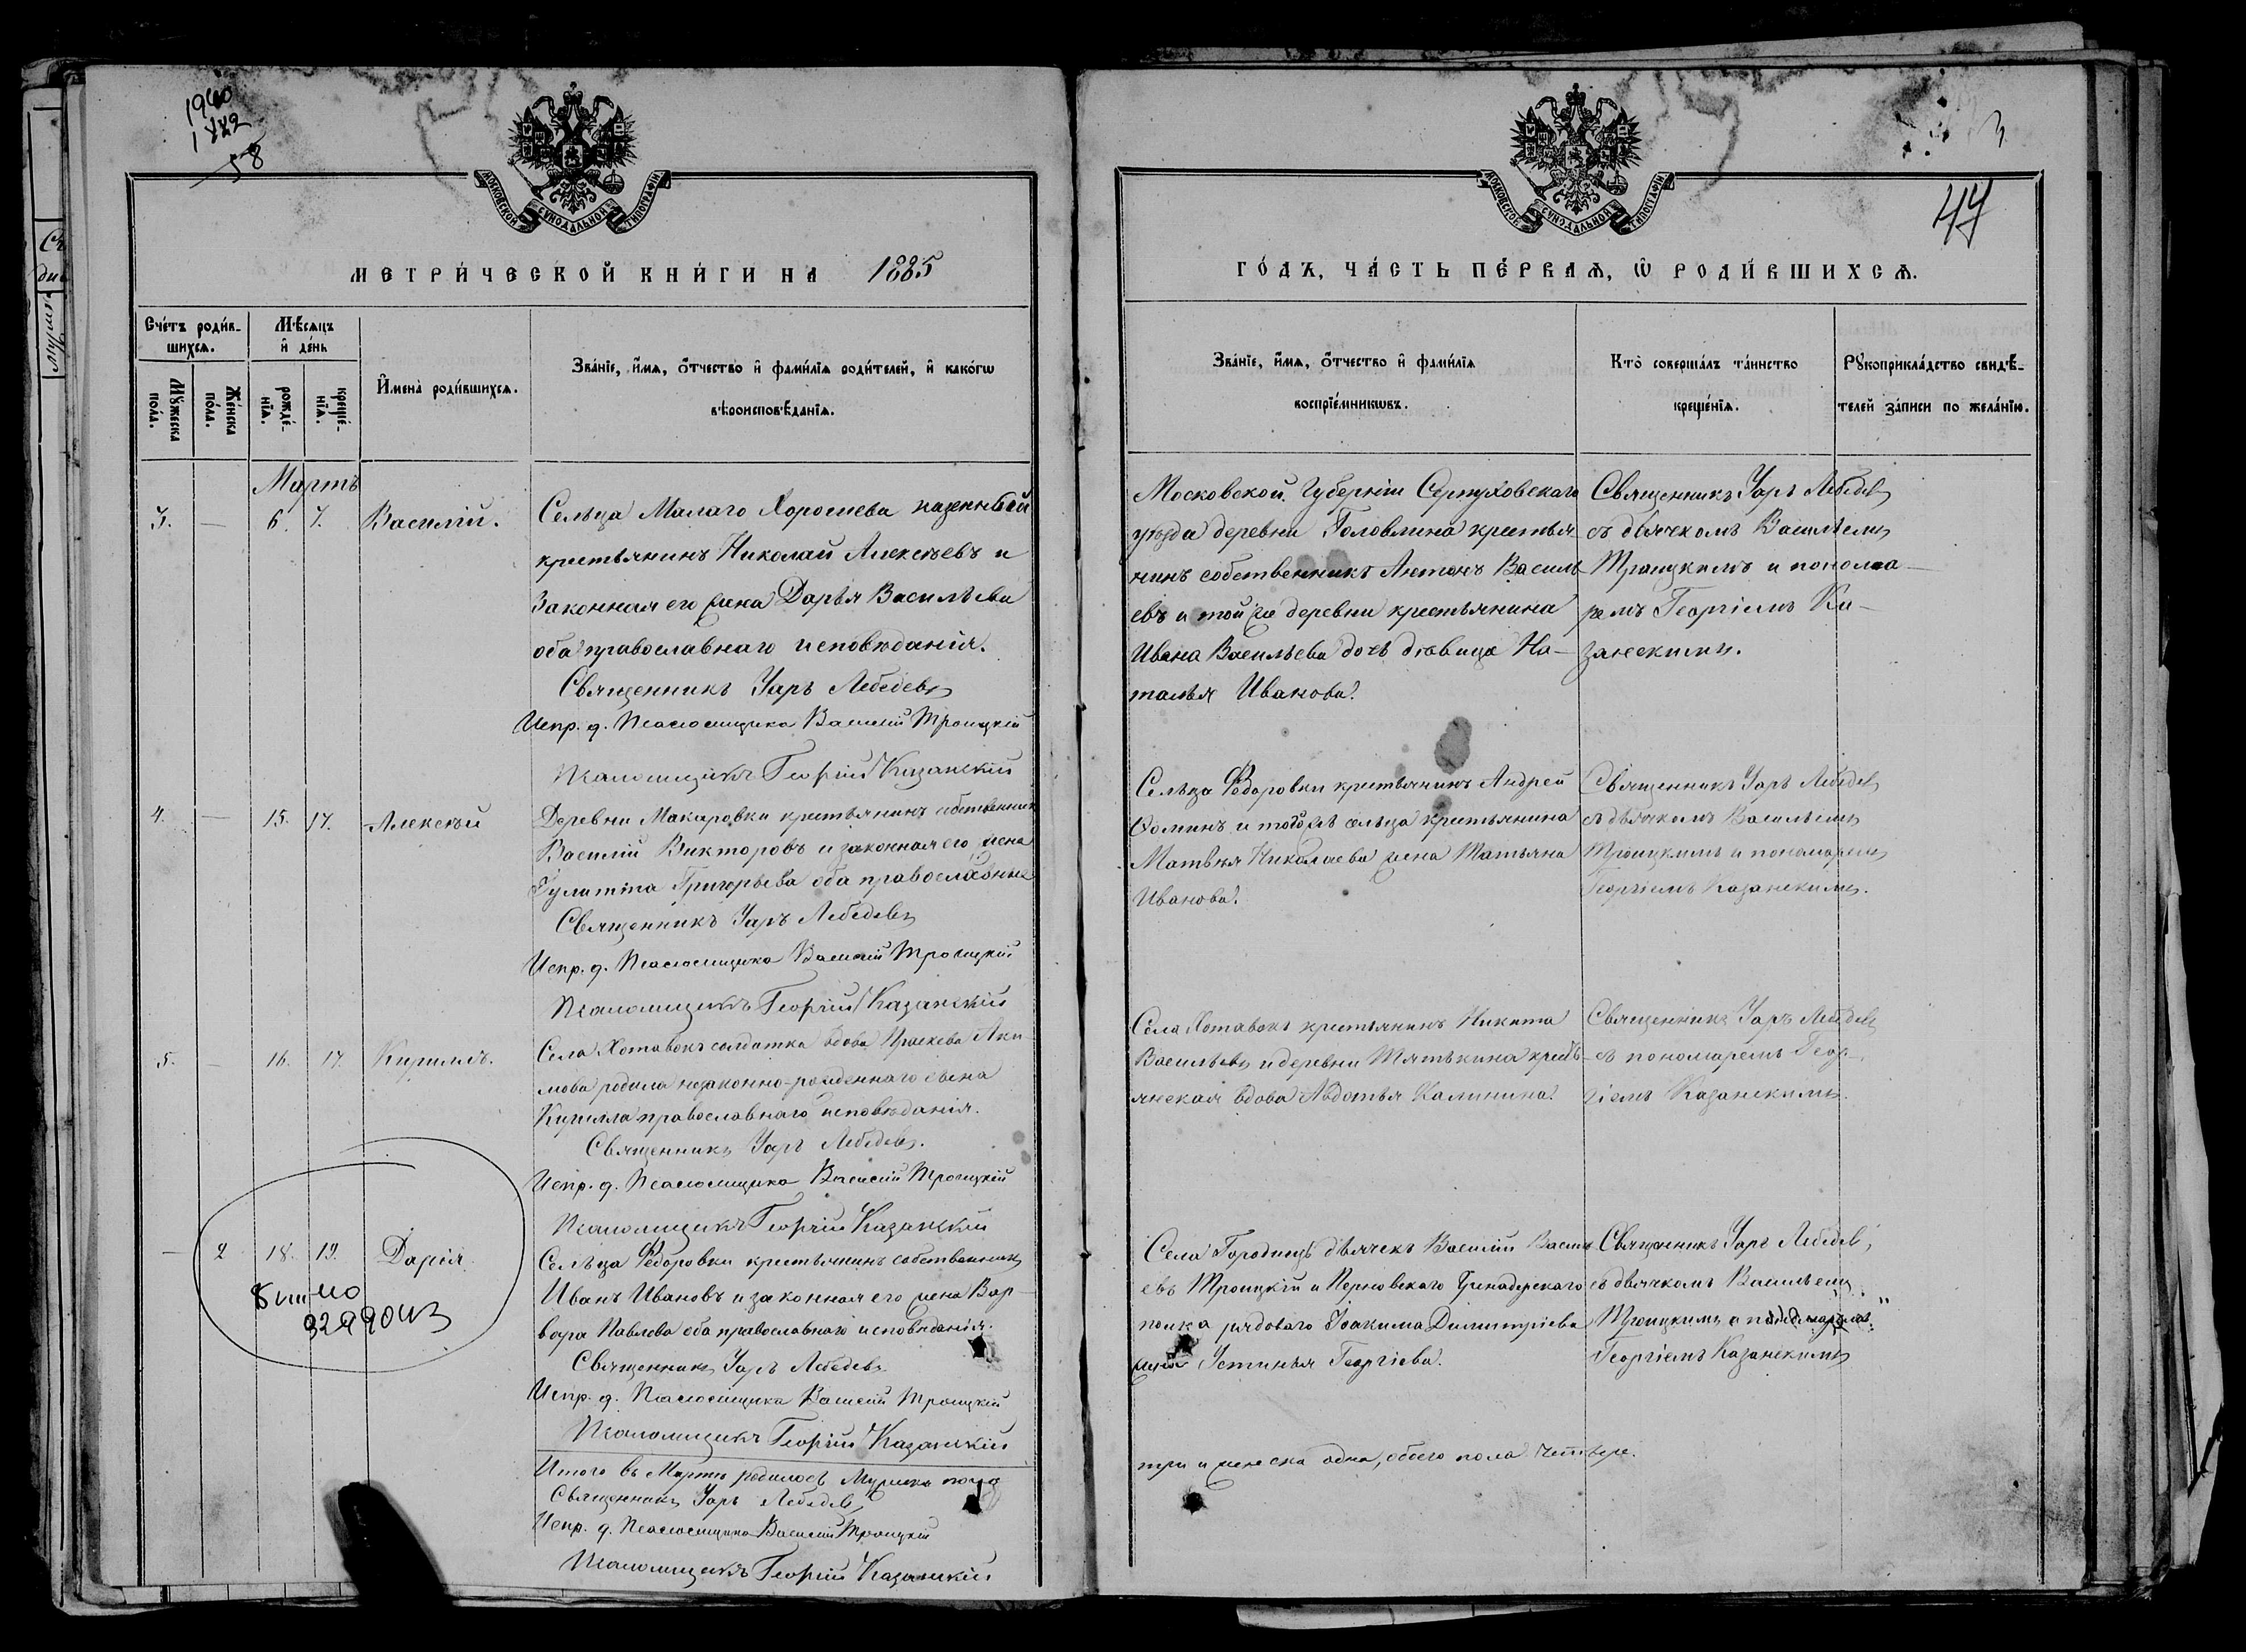 1940
1872
58
МОСКОВСКОЙ СѴНОДАЛЬНОЙ ТИПОГРАФІИ
МЕТРИ́ЧЕСКОЙ КНИ́ГИ НА 1885
Сче́тъ роди́в-
шихсѧ.
Мѣ́сѧцъ
и҆ де́нь
Мꙋ́жеска
по́ла.
Же́нска
по́ла.
рожде́-
нїѧ.
креще́-
нїѧ.
И҆мена̀ роди́вшихсѧ.
Зва́нїе, и҆́мѧ, ѻ҆́тчество и҆ фами́лїѧ роди́телей, и҆ како́гѡ
вѣроисповѣ́данїѧ.
Мартъ
3. — 6. 7. Василій.
Сельца Малаго Хорошева казенный
крестьянинъ Николай Алексѣевъ и
законная его жена Дарья Васильева
оба православнаго исповѣданія.
Священникъ Уаръ Лебедевъ
Испр. д. Псаломщика Василій Троицкій
Псаломщикъ Георгій Казанскій
4. — 15. 17. Алексѣй
Деревни Макаровки крестьянинъ собственникъ
Василій Викторовъ и законная его жена
Іулитта Григорьева оба православные
Священникъ Уаръ Лебедевъ
Испр. д. Псаломщика Василій Троицкій
Псаломщикъ Георгій Казанскій
5. — 16. 17. Кириллъ.
Села Хотавокъ солдатка вдова Праскева Аки-
мова родила незаконно-рожденнаго сына
Кирилла православнаго исповѣданія.
Священникъ Уаръ Лебедевъ.
Испр. д. Псаломщика Василій Троицкій
Псаломщикъ Георгій Казанскій
— 2 18. 19. Дарія
Сельца Ѳедоровки крестьянинъ собственникъ
Иванъ Ивановъ и законная его жена Вар-
вара Павлова оба православнаго исповѣданія.
Священникъ Уаръ Лебедевъ
Испр. д. Псаломщика Василій Троицкій
Псаломщикъ Георгій Казанскій
Итого въ Мартѣ родилось Мужска пола
Священникъ Уаръ Лебедевъ
Испр. д. Псаломщика Василій Троицкій
Псаломщикъ Георгій Казанскій
МОСКОВСКОЙ СѴНОДАЛЬНОЙ ТИПОГРАФІИ
3
ГО́ДЪ, ЧА́СТЬ ПЕ́РВАѦ, Ѡ҆ РОДИ́ВШИХСѦ.
Зва́нїе, и҆́мѧ, ѻ҆́тчество и҆ фами́лїѧ
воспрїе́мникѡвъ.
Кто̀ соверша́лъ та́инство
креще́нїѧ.
Рꙋкоприкла́дство свидѣ́-
телей за́писи по жела́нїю.
Московской Губерніи Серпуховскаго
уѣзда деревни Головлина крестья-
нинъ собственникъ Антонъ Василь-
евъ и той же деревни крестьянина
Ивана Васильева дочь дѣвица На-
талья Иванова.
Священникъ Уаръ Лебедевъ
съ дьячкомъ Васильемъ
Троицкимъ и понома-
ремъ Георгіемъ Ка-
занскимъ.
Сельца Ѳедоровки крестьянинъ Андрей
Ѳоминъ и тогоже сельца крестьянина
Матвѣя Николаева жена Татьяна
Иванова.
Священникъ Уаръ Лебедевъ
съ дьячкомъ Васильемъ
Троицкимъ и пономаремъ
Георгіемъ Казанскимъ.
Села Хотавокъ крестьянинъ Никита
Васильевъ и деревни Тятькина кресть-
янская вдова Авдотья Калинина.
Священникъ Уаръ Лебедевъ
съ пономаремъ Геор-
гіемъ Казанскимъ.
Села Городищъ дьячекъ Василій Василь-
евъ Троицкій и Перновскаго Гренадерскаго
полка рядоваго Іоакима Димитріева
жена Устинья Георгіева.
Священникъ Уаръ Лебедевъ,
съ дьячкомъ Васильемъ
Троицкимъ и пономаремъ
Георгіемъ Казанскимъ
три и женска одна, обоего пола четыре.